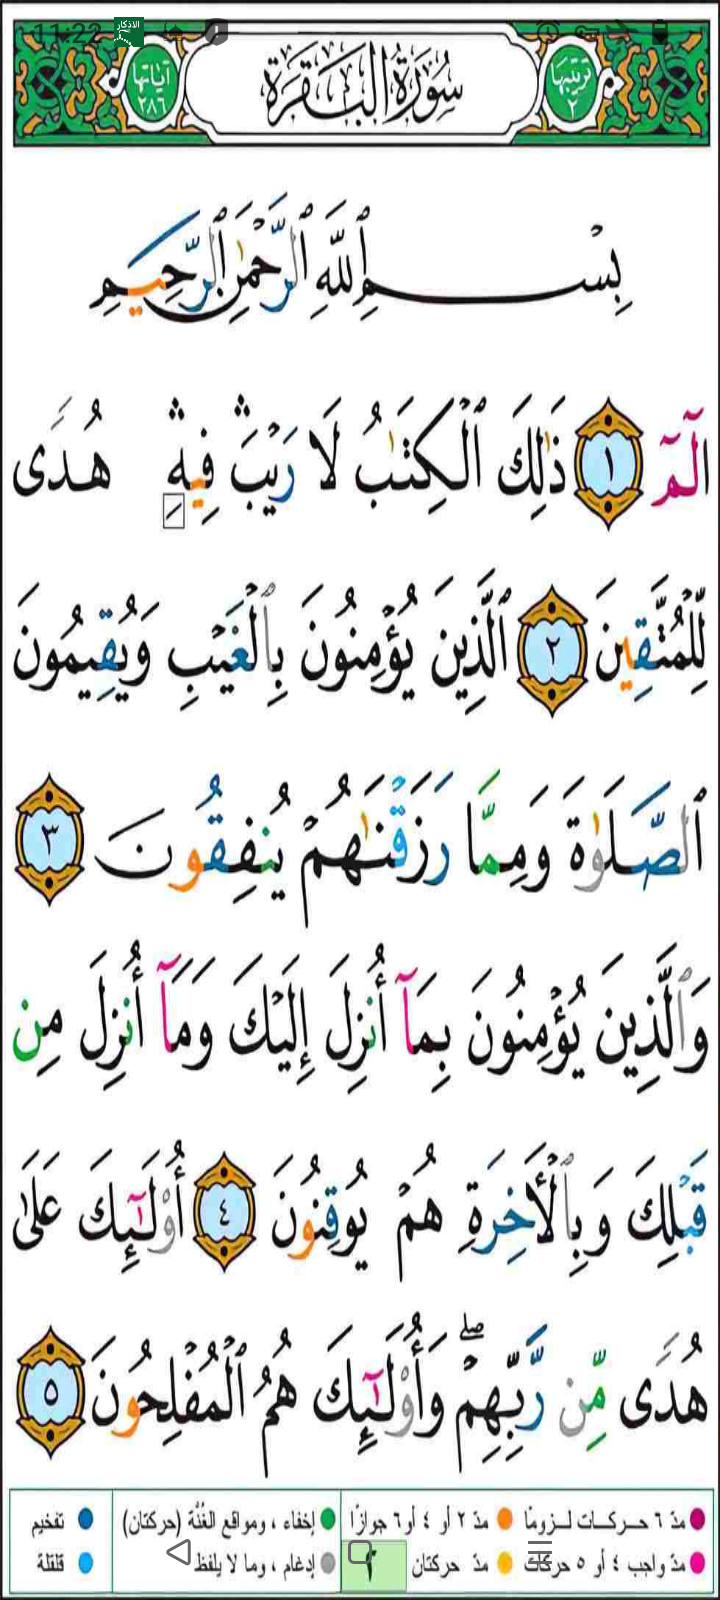 11:22 الاذكار
ترتيبها ٢ سُورَةُ الْبَقَرَةِ آياتها ٢٨٦
بِسْمِ ٱللَّهِ ٱلرَّحْمَٰنِ ٱلرَّحِيمِ
الٓمٓ ١ ذَٰلِكَ ٱلْكِتَٰبُ لَا رَيْبَ ۛ فِيهِ ۛ هُدًى
لِّلْمُتَّقِينَ ٢ ٱلَّذِينَ يُؤْمِنُونَ بِٱلْغَيْبِ وَيُقِيمُونَ
ٱلصَّلَوٰةَ وَمِمَّا رَزَقْنَٰهُمْ يُنفِقُونَ ٣
وَٱلَّذِينَ يُؤْمِنُونَ بِمَآ أُنزِلَ إِلَيْكَ وَمَآ أُنزِلَ مِن
قَبْلِكَ وَبِٱلْأَخِرَةِ هُمْ يُوقِنُونَ ٤ أُوْلَٰٓئِكَ عَلَىٰ
هُدًى مِّن رَّبِّهِمْ ۖ وَأُوْلَٰٓئِكَ هُمُ ٱلْمُفْلِحُونَ ٥
مدّ ٦ حـركـات لـزومًا مدّ ٢ أو ٤ أو ٦ جوازًا إخفاء ، ومواقع الغُنَّة (حركتان) تفخيم
مدّ واجب ٤ أو ٥ حركات مدّ حركتان ٢ إدغام ، وما لا يلفظ قلقلة